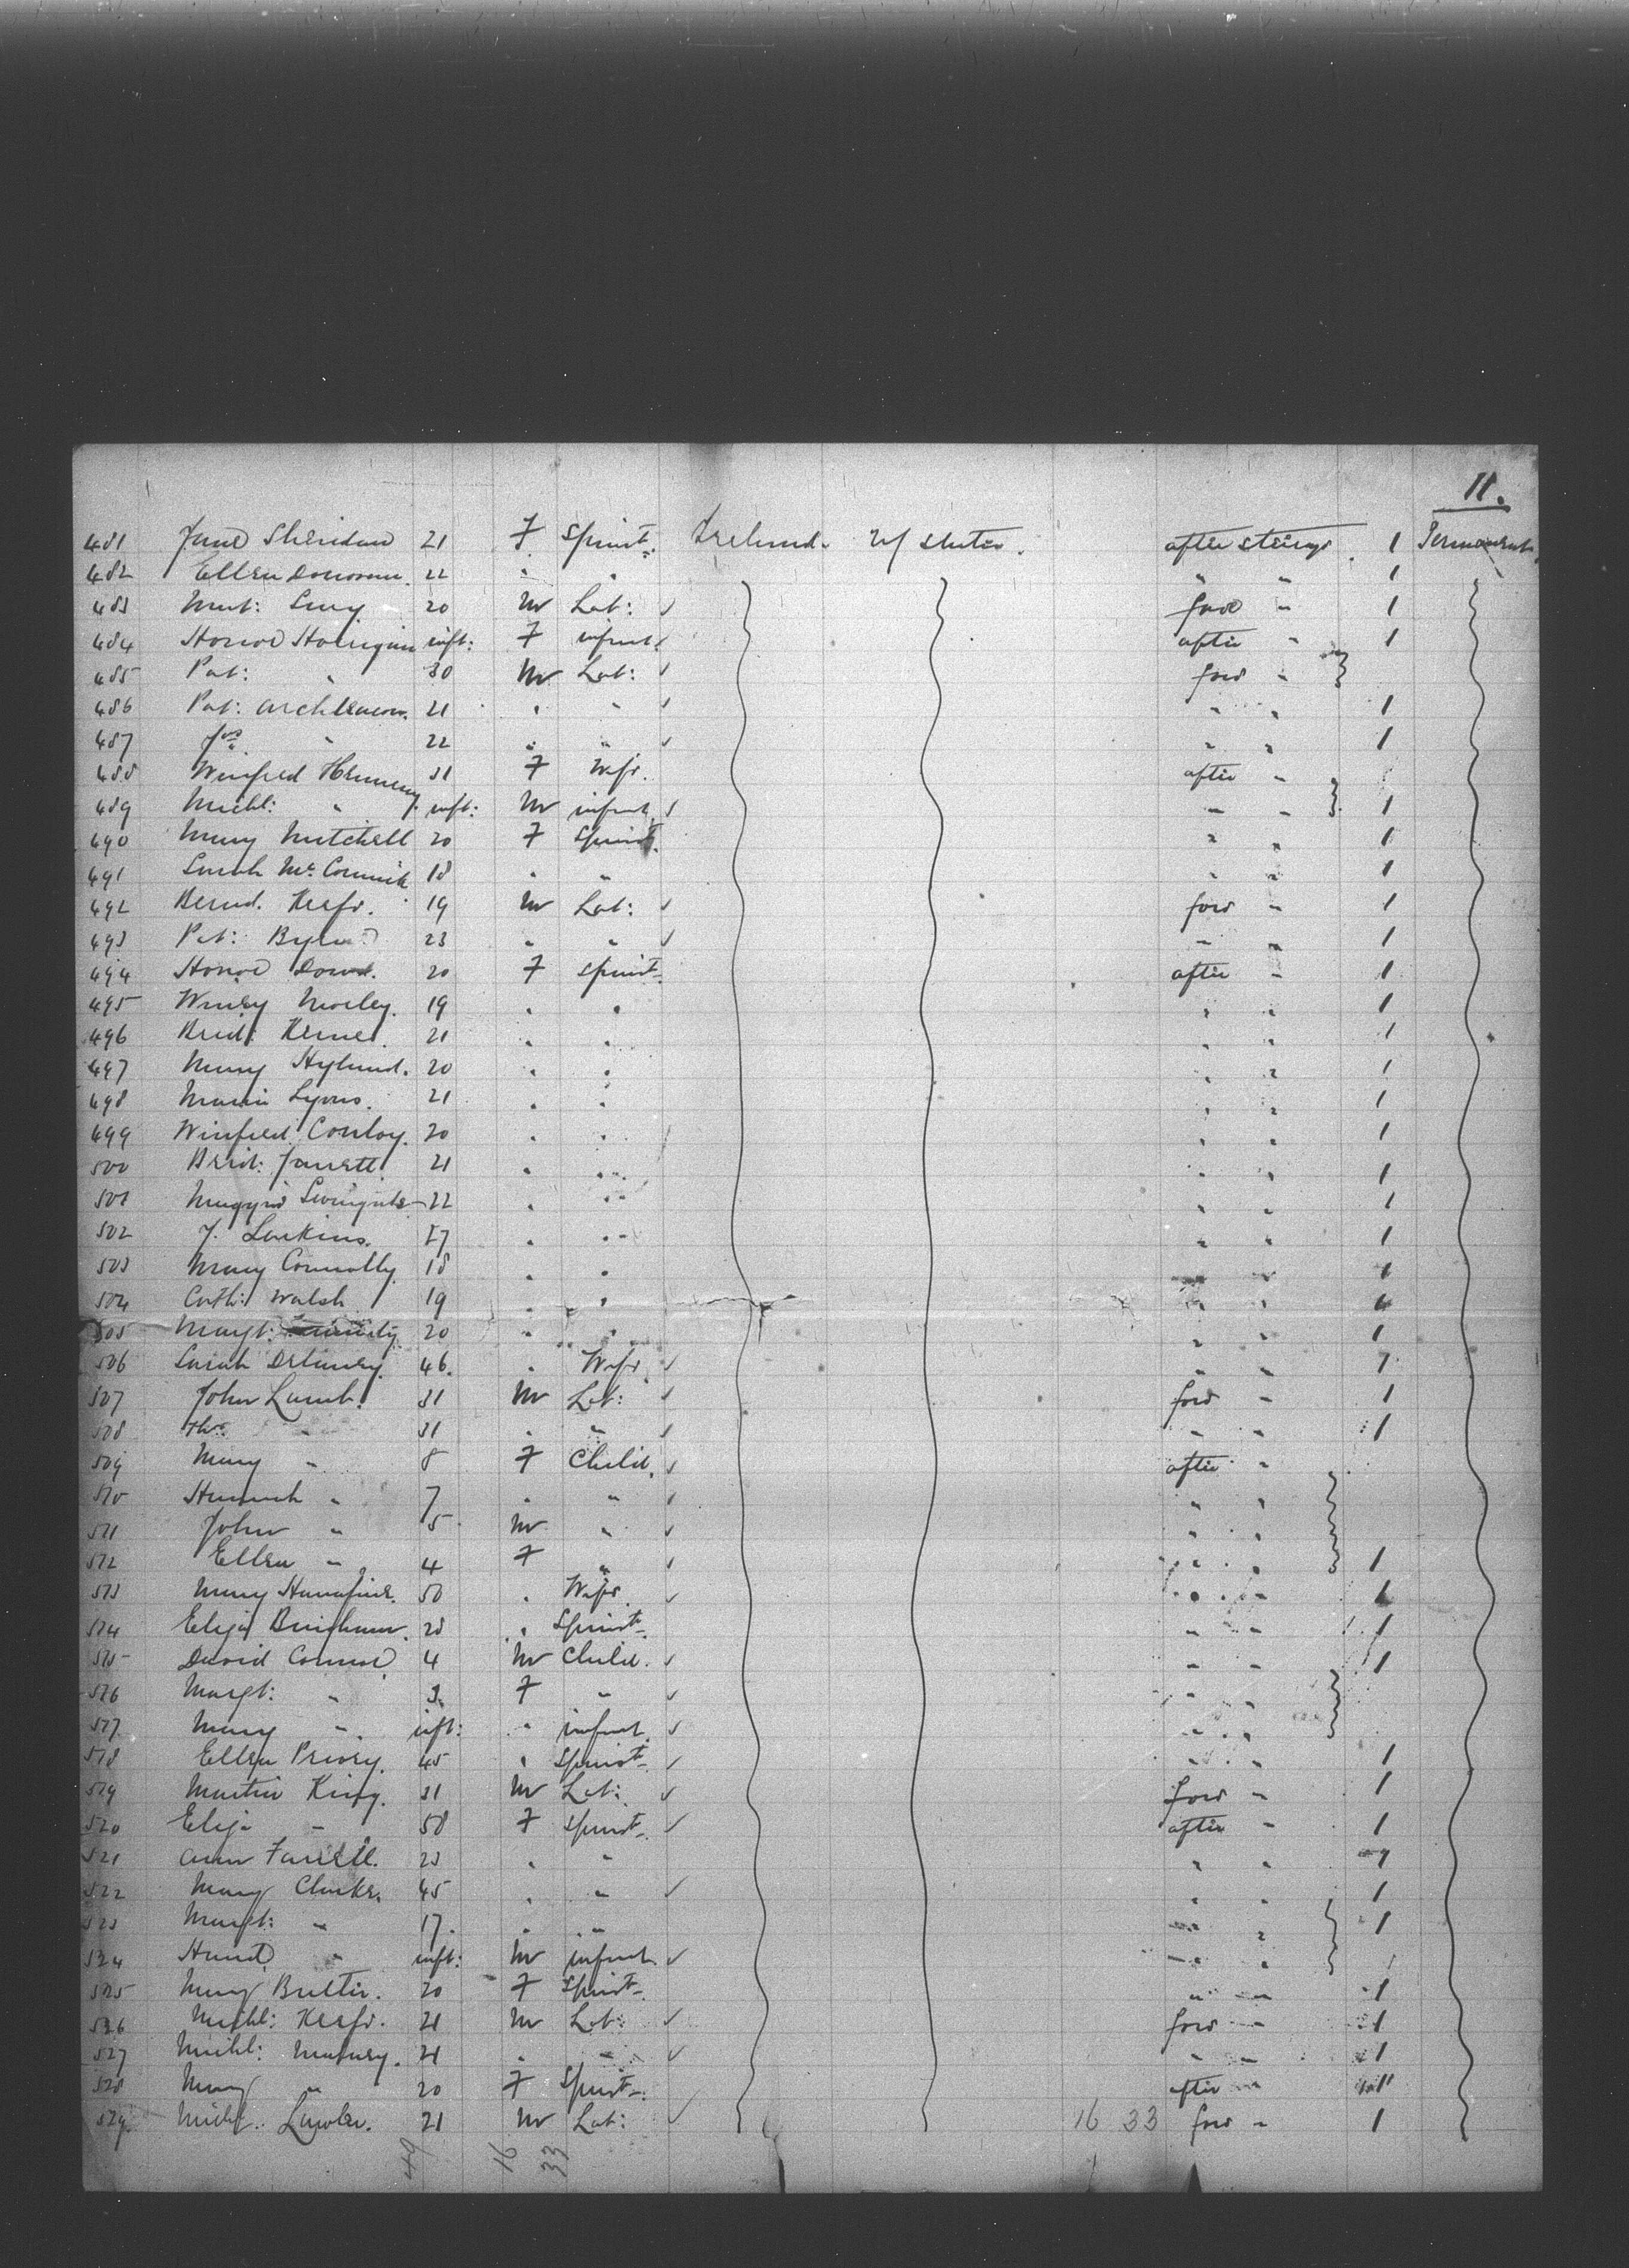 11.
481 Jane Sheridan 21 F Spinst. Ireland. U/ States. after steerage. 1 Permanent
482 Ellen Donovan. 22 " " " " 1
483 20 M Lab: ✓ ford " 1
484 Honor inft: F infant ✓ after " 1
485 Pat: " 30 M Lab: ✓ ford "
486 Pat: Archdeacon. 21 " " ✓ " " 1
487 Jos " 22 " " ✓ " " 1
488 Winfred Hennessy 31 F Wife. after "
489 Michl: " inft: M infant ✓ " " 1
490 Mary Mitchell 20 F Spinst. " " 1
491 Sarah McCormick 18 " " " " 1
492 Bernd. Keefe. 19 M Lab: ✓ ford " 1
493 Pat: Byrne 23 " " ✓ " " 1
494 Honor Dowd. 20 F Spinst. after " 1
495 Winey Morley. 19 " " " " 1
496 Brid: 21 " " " " 1
497 Mary Hyland. 20 " " " " 1
498 Maria Lyons. 21 " " " " 1
499 Winfred Conboy. 20 " " " " 1
500 Brid: 21 " " " " 1
501 Maggie 22 " " " " 1
502 J. Larkins. 17 " " " " 1
503 Mary Connolly. 18 " " " " 1
504 Cath: Walsh 19 " " " " 1
505 Margt: 20 " " " " 1
506 Sarah Delaney. 46. " Wife ✓ " " 1
507 John Lamb. 31 M Lab: ✓ ford " 1
508 Tho: " 31 " " ✓ " " 1
509 Mary " 8 F Child. ✓ after "
510 Hannah " 7 " " ✓ " "
511 John " 5 M " ✓ " "
512 Ellen " 4 F " ✓ " " 1
513 Mary Hanafine. 50 " Wife. ✓ " " 1
514 Eliza Bingham. 20 " Spinst. " " 1
515 David Connor 4 M Child. ✓ " " 1
516 Margt: " 3 F " ✓ " "
517 Mary " inft: " infant ✓ " "
518 Ellen Privey. 45 " Spinst. ✓ " " 1
519 Martin King. 31 M Lab: ✓ ford " 1
520 Eliza " 58 F Spinst. ✓ after " 1
521 Ann Farrell. 23 " " " " 1
522 Mary Clarke. 45 " " ✓ " " 1
523 Margt: " 17. " " " " 1
524 " inft: M infant ✓ " "
525 Mary Butler. 20 F Spinst. " " 1
526 Michl: Keefe. 21 M Lab: ✓ ford " 1
527 Michl: 21 " " ✓ " " 1
528 Mary " 20 F Spinst. after " 1
529 Michl: Lawler. 21 M Lab: ✓ 16 33 ford " 1
49 16 33